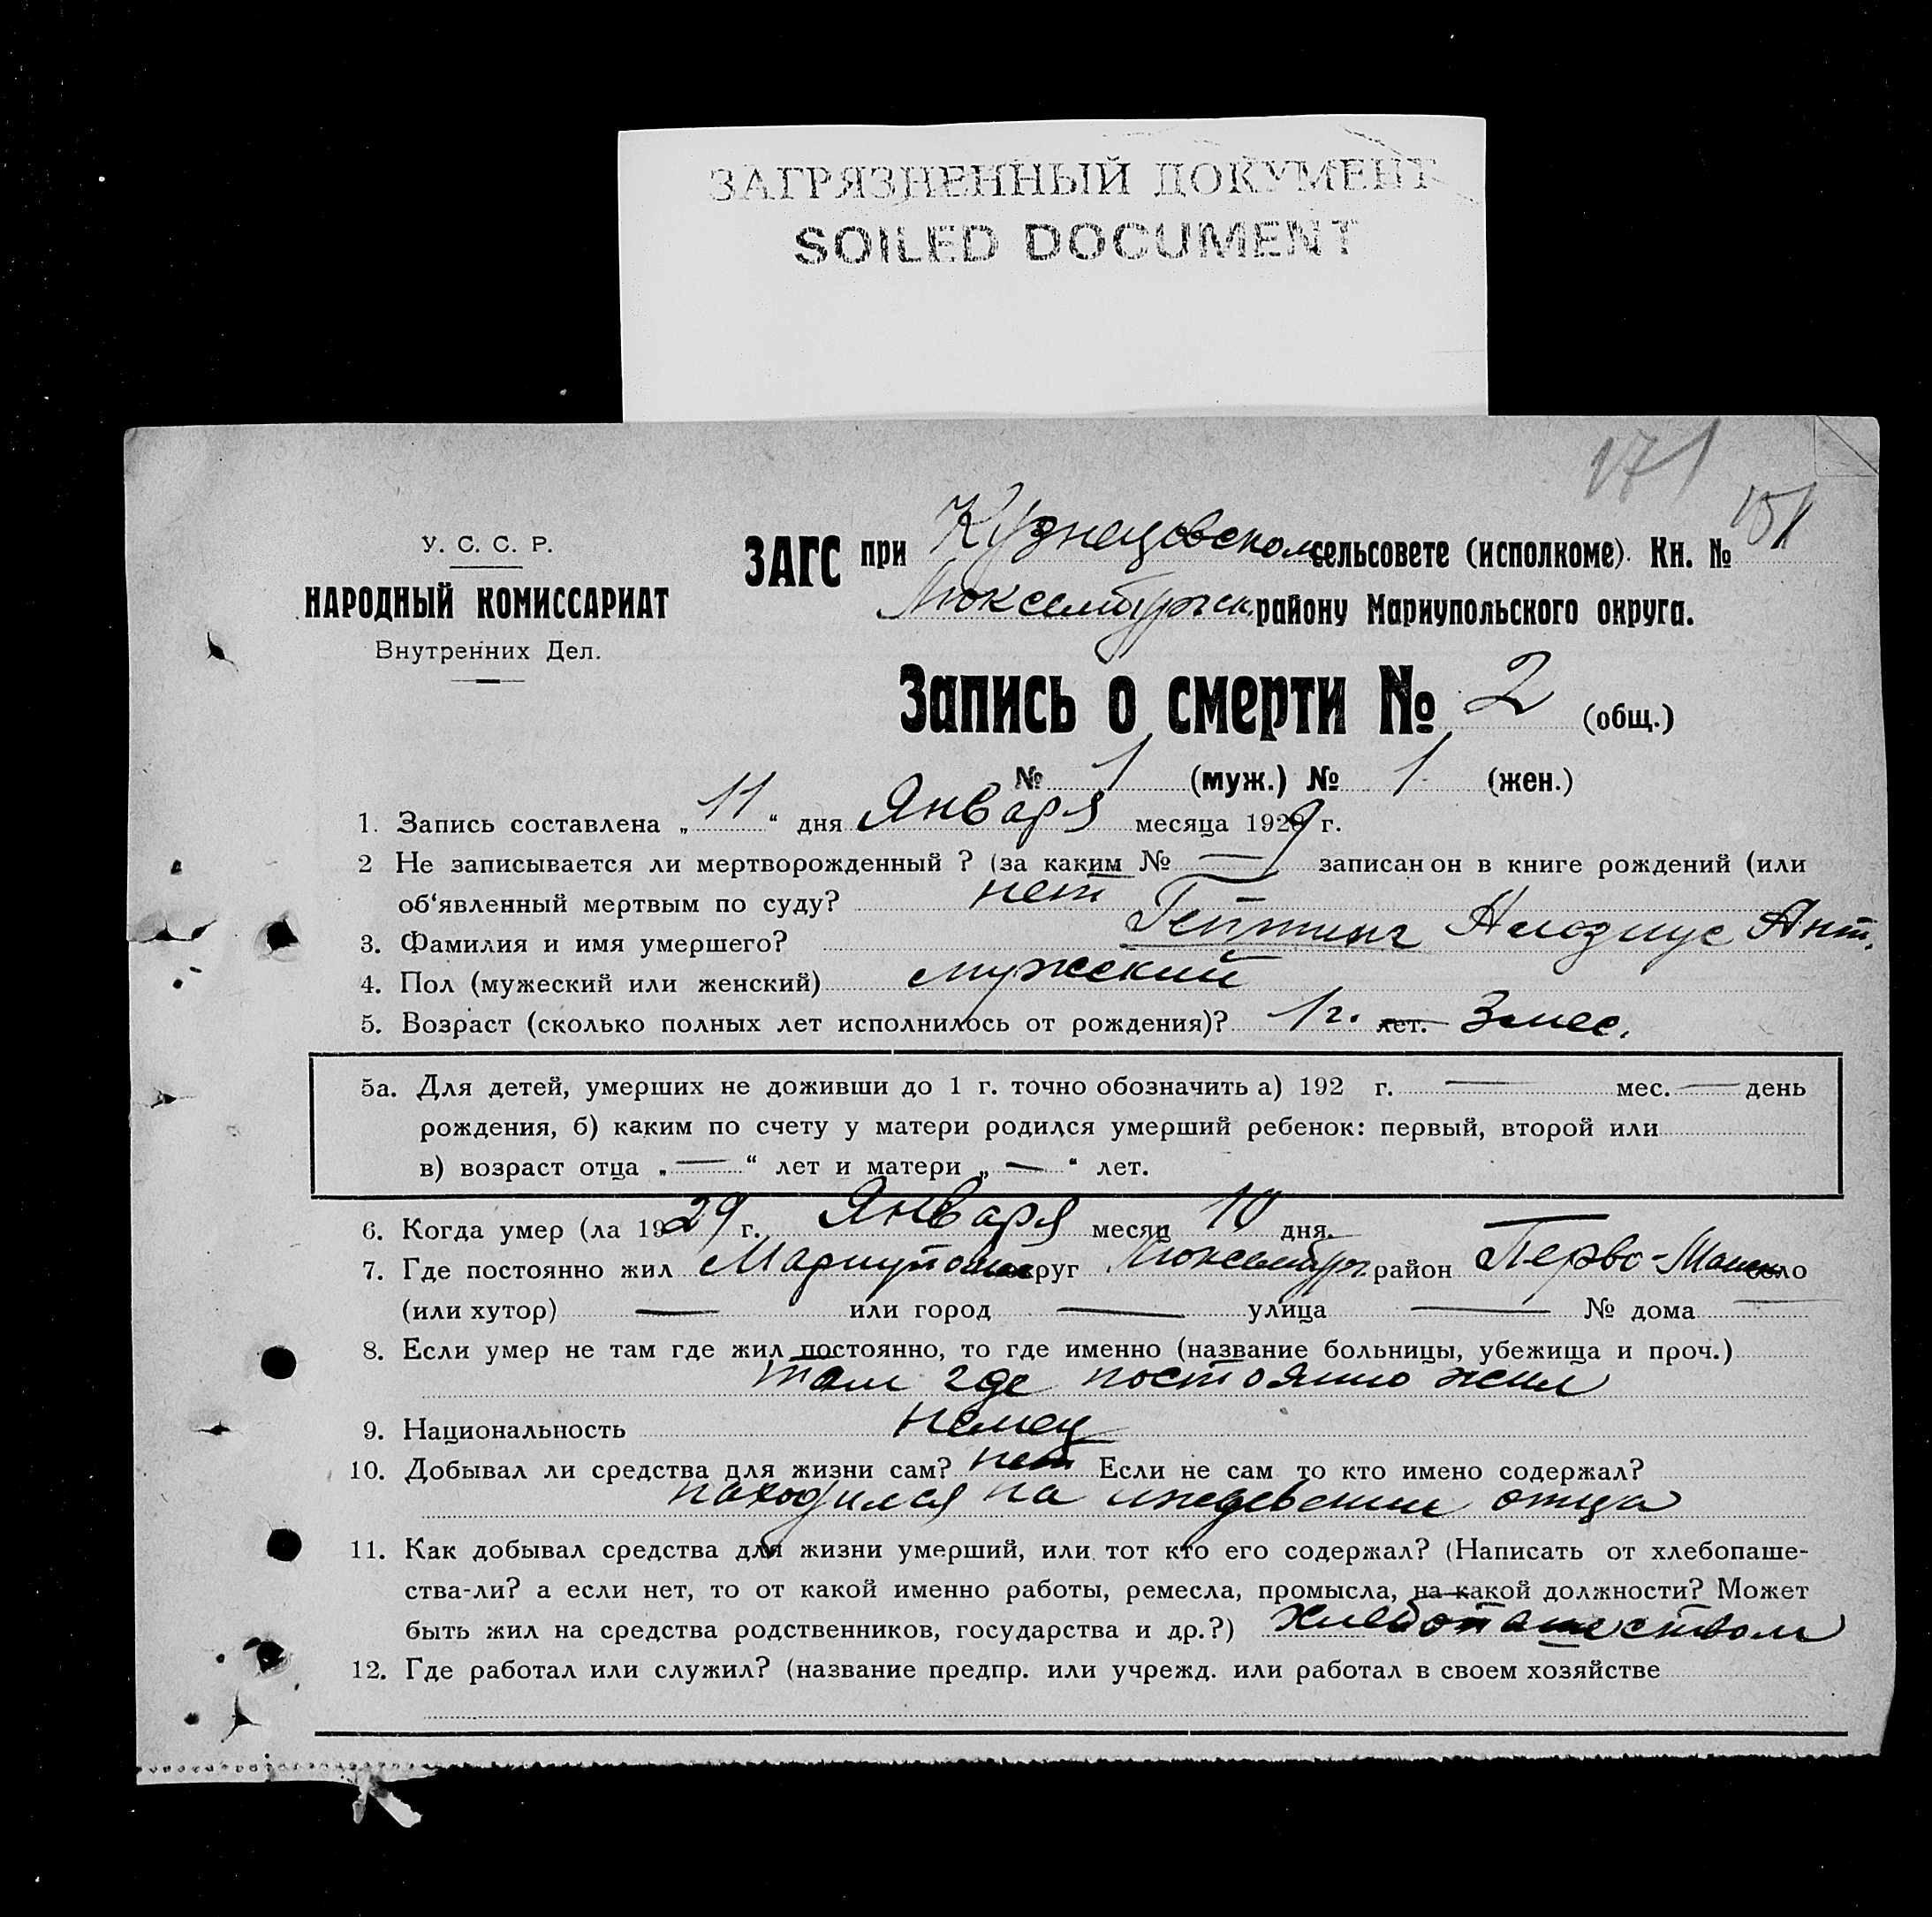 ЗАГРЯЗНЕННЫЙ ДОКУМЕНТ
SOILED DOCUMENT
171
151
У. С. С. Р.
НАРОДНЫЙ КОМИССАРИАТ
Внутренних Дел.
ЗАГС при Кузнецовском сельсовете (исполкоме). Кн. №
Люксембургск. району Мариупольского округа.
Запись о смерти № 2 (общ.)
№ 1 (муж.) № 1 (жен.)
1. Запись составлена „ 11 “ дня Января месяца 1929 г.
2 Не записывается ли мертворожденный ? (за каким № — записан он в книге рождений (или
об‘явленный мертвым по суду? нет
3. Фамилия и имя умершего? Геттинг Алозиус Ант.
4. Пол (мужеский или женский) мужский
5. Возраст (сколько полных лет исполнилось от рождения)? 1 г. лет. 3 мес.
5а. Для детей, умерших не доживши до 1 г. точно обозначить а) 192 г. — мес. — день
рождения, б) каким по счету у матери родился умерший ребенок: первый, второй или
в) возраст отца „ — “ лет и матери „ — “ лет.
6. Когда умер (ла 1929 г. Января месяц 10 дня.
7. Где постоянно жил Мариупольск округ Люксембург. район Перво-Майск село
(или хутор) — или город — улица — № дома —
8. Если умер не там где жил постоянно, то где именно (название больницы, убежища и проч.)
там где постоянно жил
9. Национальность немец
10. Добывал ли средства для жизни сам? нет Если не сам то кто имено содержал?
находился на иждевении отца
11. Как добывал средства для жизни умерший, или тот кто его содержал? (Написать от хлебопаше-
ства-ли? а если нет, то от какой именно работы, ремесла, промысла, на какой должности? Может
быть жил на средства родственников, государства и др.?) хлебопашеством
12. Где работал или служил? (название предпр. или учрежд. или работал в своем хозяйстве